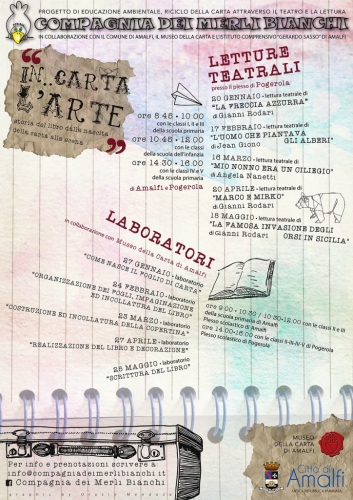 PROGETTO DI EDUCAZIONE AMBIENTALE, RICICLO DELLA CARTA ATTRAVERSO IL TEATRO E LA LETTURA
COMPAGNIA DEI MERLI BIANCHI
IN COLLABORAZIONE CON IL COMUNE DI AMALFI, IL MUSEO DELLA CARTA E L'ISTITUTO COMPRENSIVO "GERARDO SASSO" DI AMALFI
"IN...CARTA
L'ARTE"
storia del libro dalla nascita
della carta alla scena
ore 8:45 • 10:00
con le classi I, II e III
della scuola primaria
ore 10:45 • 12:00
con le classi
della scuola dell'infanzia
ore 14:30 • 16:00
con le classi IV e V
della scuola primaria
di Amalfi e Pogerola
LETTURE
TEATRALI
presso il plesso di Pogerola
20 GENNAIO • lettura teatrale di
"LA FRECCIA AZZURRA"
di Gianni Rodari
17 FEBBRAIO • lettura teatrale di
"L'UOMO CHE PIANTAVA
GLI ALBERI"
di Jean Giono
16 MARZO • lettura teatrale di
"MIO NONNO ERA UN CILIEGIO"
di Angela Nanetti
20 APRILE • lettura teatrale di
"MARCO E MIRKO"
di Gianni Rodari
18 MAGGIO • lettura teatrale di
"LA FAMOSA INVASIONE DEGLI
ORSI IN SICILIA"
di Gianni Rodari
LABORATORI
in collaborazione con Museo della Carta di Amalfi
27 GENNAIO • laboratorio
"COME NASCE IL FOGLIO DI CARTA"
24 FEBBRAIO • laboratorio
"ORGANIZZAZIONE DEI FOGLI, IMPAGINAZIONE
ED INCOLLATURA DEL LIBRO"
23 MARZO • laboratorio
"COSTRUZIONE ED INCOLLATURA DELLA COPERTINA"
27 APRILE • laboratorio
"REALIZZAZIONE DEL LIBRO E DECORAZIONE"
25 MAGGIO • laboratorio
"SCRITTURA DEL LIBRO"
ore 9:00 • 10:30 / 10:30-12.00 con le classi II e III
della scuola primaria di Amalfi
Plesso scolastico di Amalfi
ore 14:00-16:00 con le classi II-III-IV-V di Pogerola
Plesso scolastico di Pogerola
Per info e prenotazioni scrivere a
info@compagniadeimerlibianchi.it
Compagnia dei Merli Bianchi
MUSEO
DELLA CARTA
DI AMALFI
Città di
Amalfi